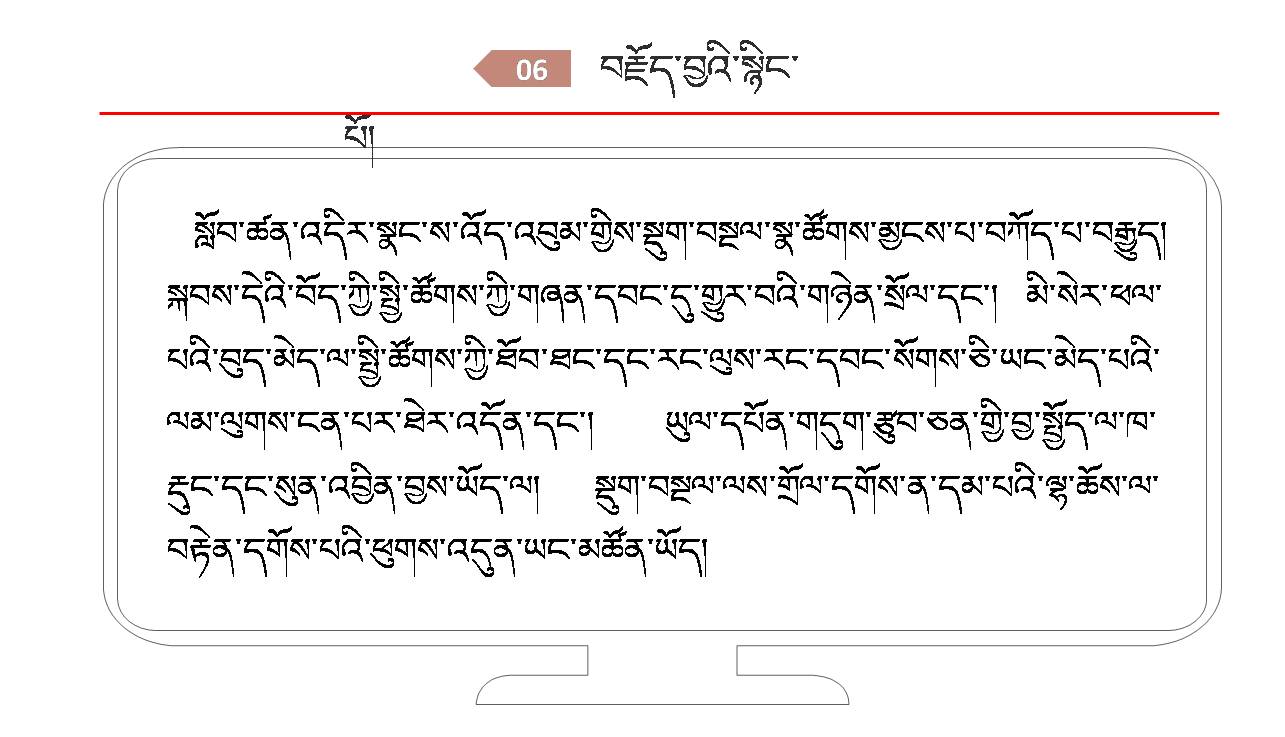 06 བརྗོད་བྱའི་སྙིང་
པོ།
སློབ་ཚན་འདིར་སྣང་ས་འོད་འབུམ་གྱིས་སྡུག་བསྔལ་སྣ་ཚོགས་མྱངས་པ་བཀོད་པ་བརྒྱུད།
སྐབས་དེའི་བོད་ཀྱི་སྤྱི་ཚོགས་ཀྱི་གཞན་དབང་དུ་གྱུར་བའི་གཉེན་སྲོལ་དང་། མི་སེར་ཕལ་
པའི་བུད་མེད་ལ་སྤྱི་ཚོགས་ཀྱི་ཐོབ་ཐང་དང་རང་ལུས་རང་དབང་སོགས་ཅི་ཡང་མེད་པའི་
ལམ་ལུགས་ངན་པར་ཐེར་འདོན་དང་། ཡུལ་དཔོན་གདུག་རྩུབ་ཅན་གྱི་བྱ་སྤྱོད་ལ་ཁ་
རྡུང་དང་སུན་འབྱིན་བྱས་ཡོད་ལ། སྡུག་བསྔལ་ལས་གྲོལ་དགོས་ན་དམ་པའི་ལྷ་ཆོས་ལ་
བརྟེན་དགོས་པའི་ཕུགས་འདུན་ཡང་མཚོན་ཡོད།